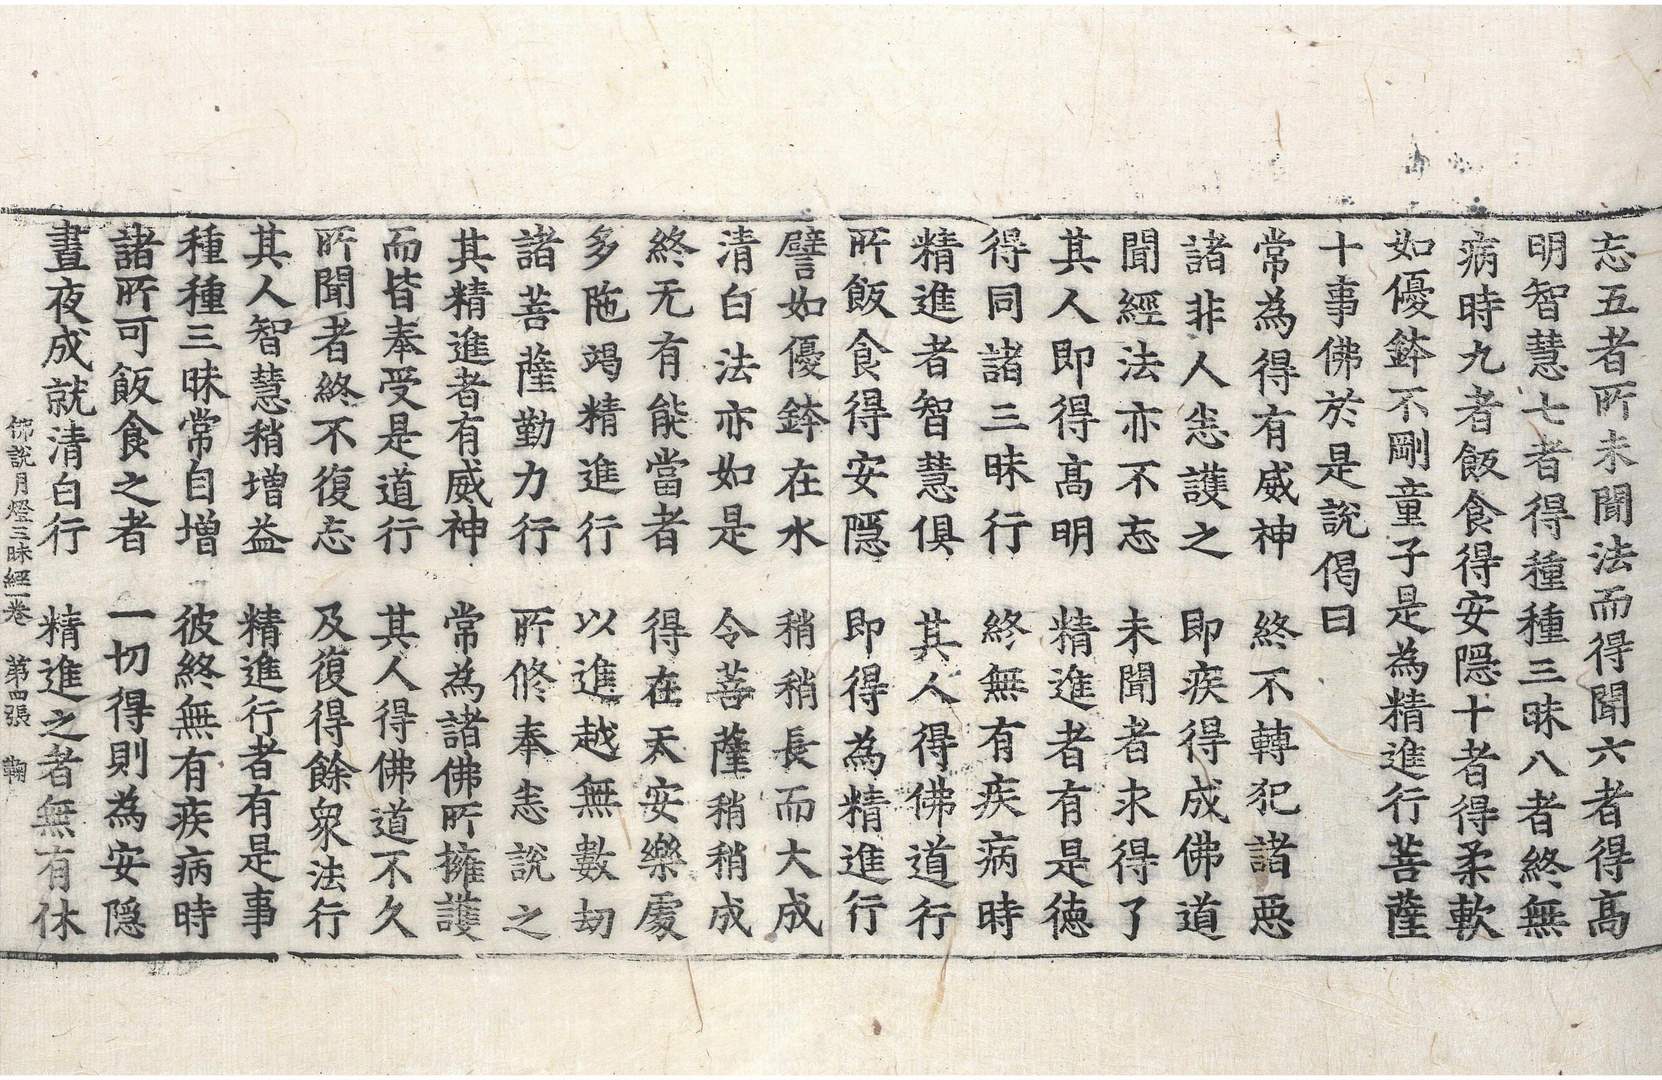 忘五者所未聞法而得聞六者得高
明智慧七者得種種三昧八者終無
病時九者飯食得安隱十者得柔軟
如優鉢不剛童子是為精進行菩薩
十事佛於是說偈曰
常為得有威神　終不轉犯諸惡
諸非人恙護之　即疾得成佛道
聞經法亦不忘　未聞者求得了
其人即得高明　精進者有是德
得同諸三昧行　終無有疾病時
精進者智慧俱　其人得佛道行
所飯食得安隱　即得為精進行
譬如優鉢在水　稍稍長而大成
清白法亦如是　令菩薩稍稍成
終无有能當者　得在天安樂處
多陁竭精進行　以進越無數劫
諸菩薩勤力行　所修奉恙說之
其精進者有威神　常為諸佛所擁護
而皆奉受是道行　其人得佛道不久
所聞者終不復忘　及復得餘衆法行
其人智慧稍增益　精進行者有是事
種種三昧常自增　彼終無有疾病時
諸所可飯食之者　一切得則為安隱
晝夜成就清白行　精進之者無有休
佛說月燈三昧經一卷　第四張　鞠